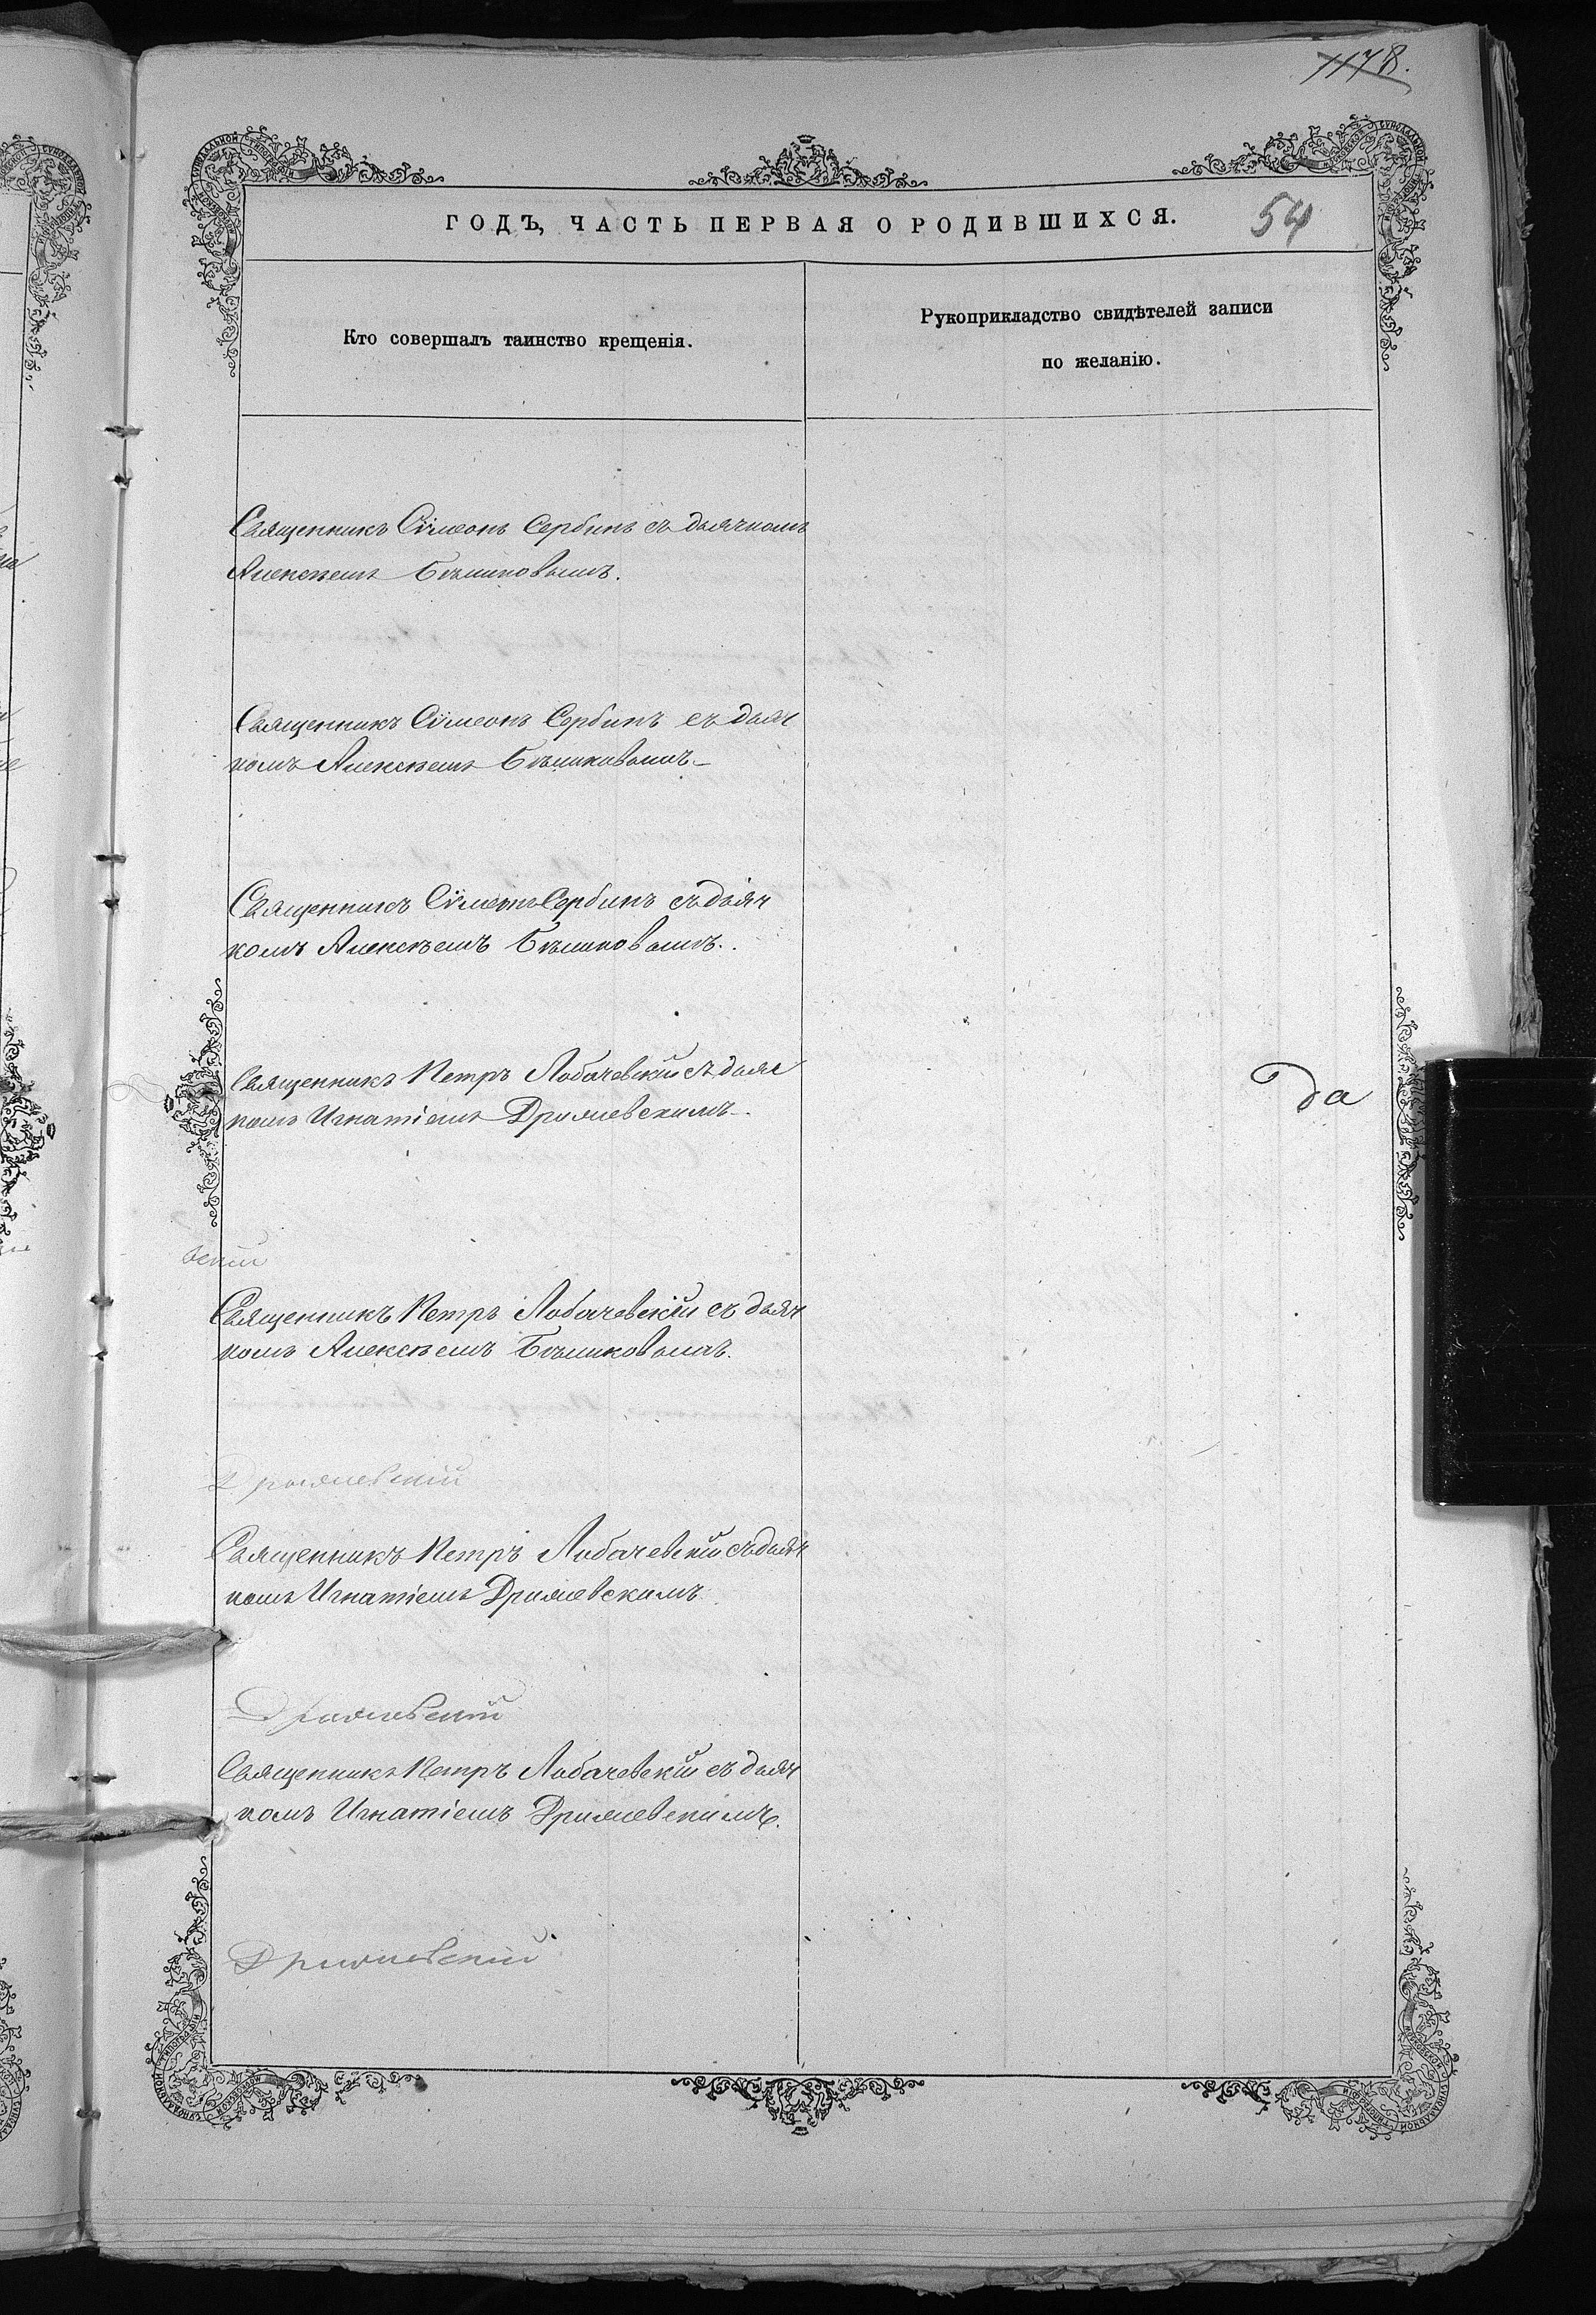 1178.
ГОДЪ, ЧАСТЬ ПЕРВАЯ О РОДИВШИХСЯ.
54
Кто совершалъ таинство крещенія.
Рукоприкладство свидѣтелей записи
по желанію.
Священникъ Сѵмеонъ Сербинъ съ дьячкомъ
Алексѣемъ Бѣликовымъ.
Священникъ Сѵмеонъ Сербинъ съ дьяч
комъ Алексѣемъ Бѣликовымъ
Священникъ Сѵмеонъ Сербинъ съ дьяч
комъ Алексѣемъ Бѣликовымъ.
Священникъ Петръ Лобачевскій съ дьяч
комъ Игнатіемъ Дримлевскимъ.
да
вскій
Священникъ Петръ Лобачевскій съ дьяч
комъ Алексѣемъ Бѣликовымъ.
Дримлевскій
Священникъ Петръ Лобачевскій съ дьяч
комъ Игнатіемъ Дримлевскимъ.
Дримлевскій
Священникъ Петръ Лобачевскій съ дьяч
комъ Игнатіемъ Дримлевскимъ.
Дримлевскій